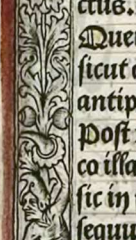 ctus.
Quer
ſicut
antip
Poſt
co illa
ſic in
ſequi